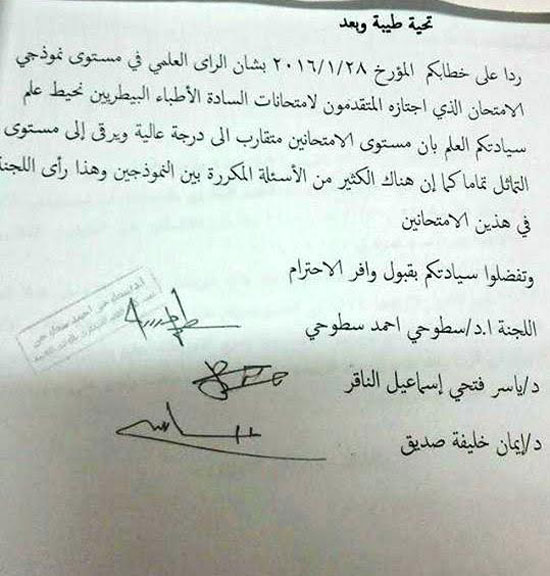 تحية طيبة وبعد
ردا على خطابكم المؤرخ ٢٠١٦/١/٢٨ بشان الراى العلمي في مستوى نموذجي
الامتحان الذي اجتازه المتقدمون لامتحانات السادة الأطباء البيطريين نحيط علم
سيادتكم العلم بان مستوى الامتحانين متقارب الى درجة عالية ويرقى إلى مستوى
التماثل تماما كما إن هناك الكثير من الأسئلة المكررة بين النموذجين وهذا رأى اللجنة
في هذين الامتحانين
وتفضلوا سيادتكم بقبول وافر الاحترام
اللجنة ا.د/سطوحي احمد سطوحي
د/ياسر فتحي إسماعيل الناقر
د/إيمان خليفة صديق